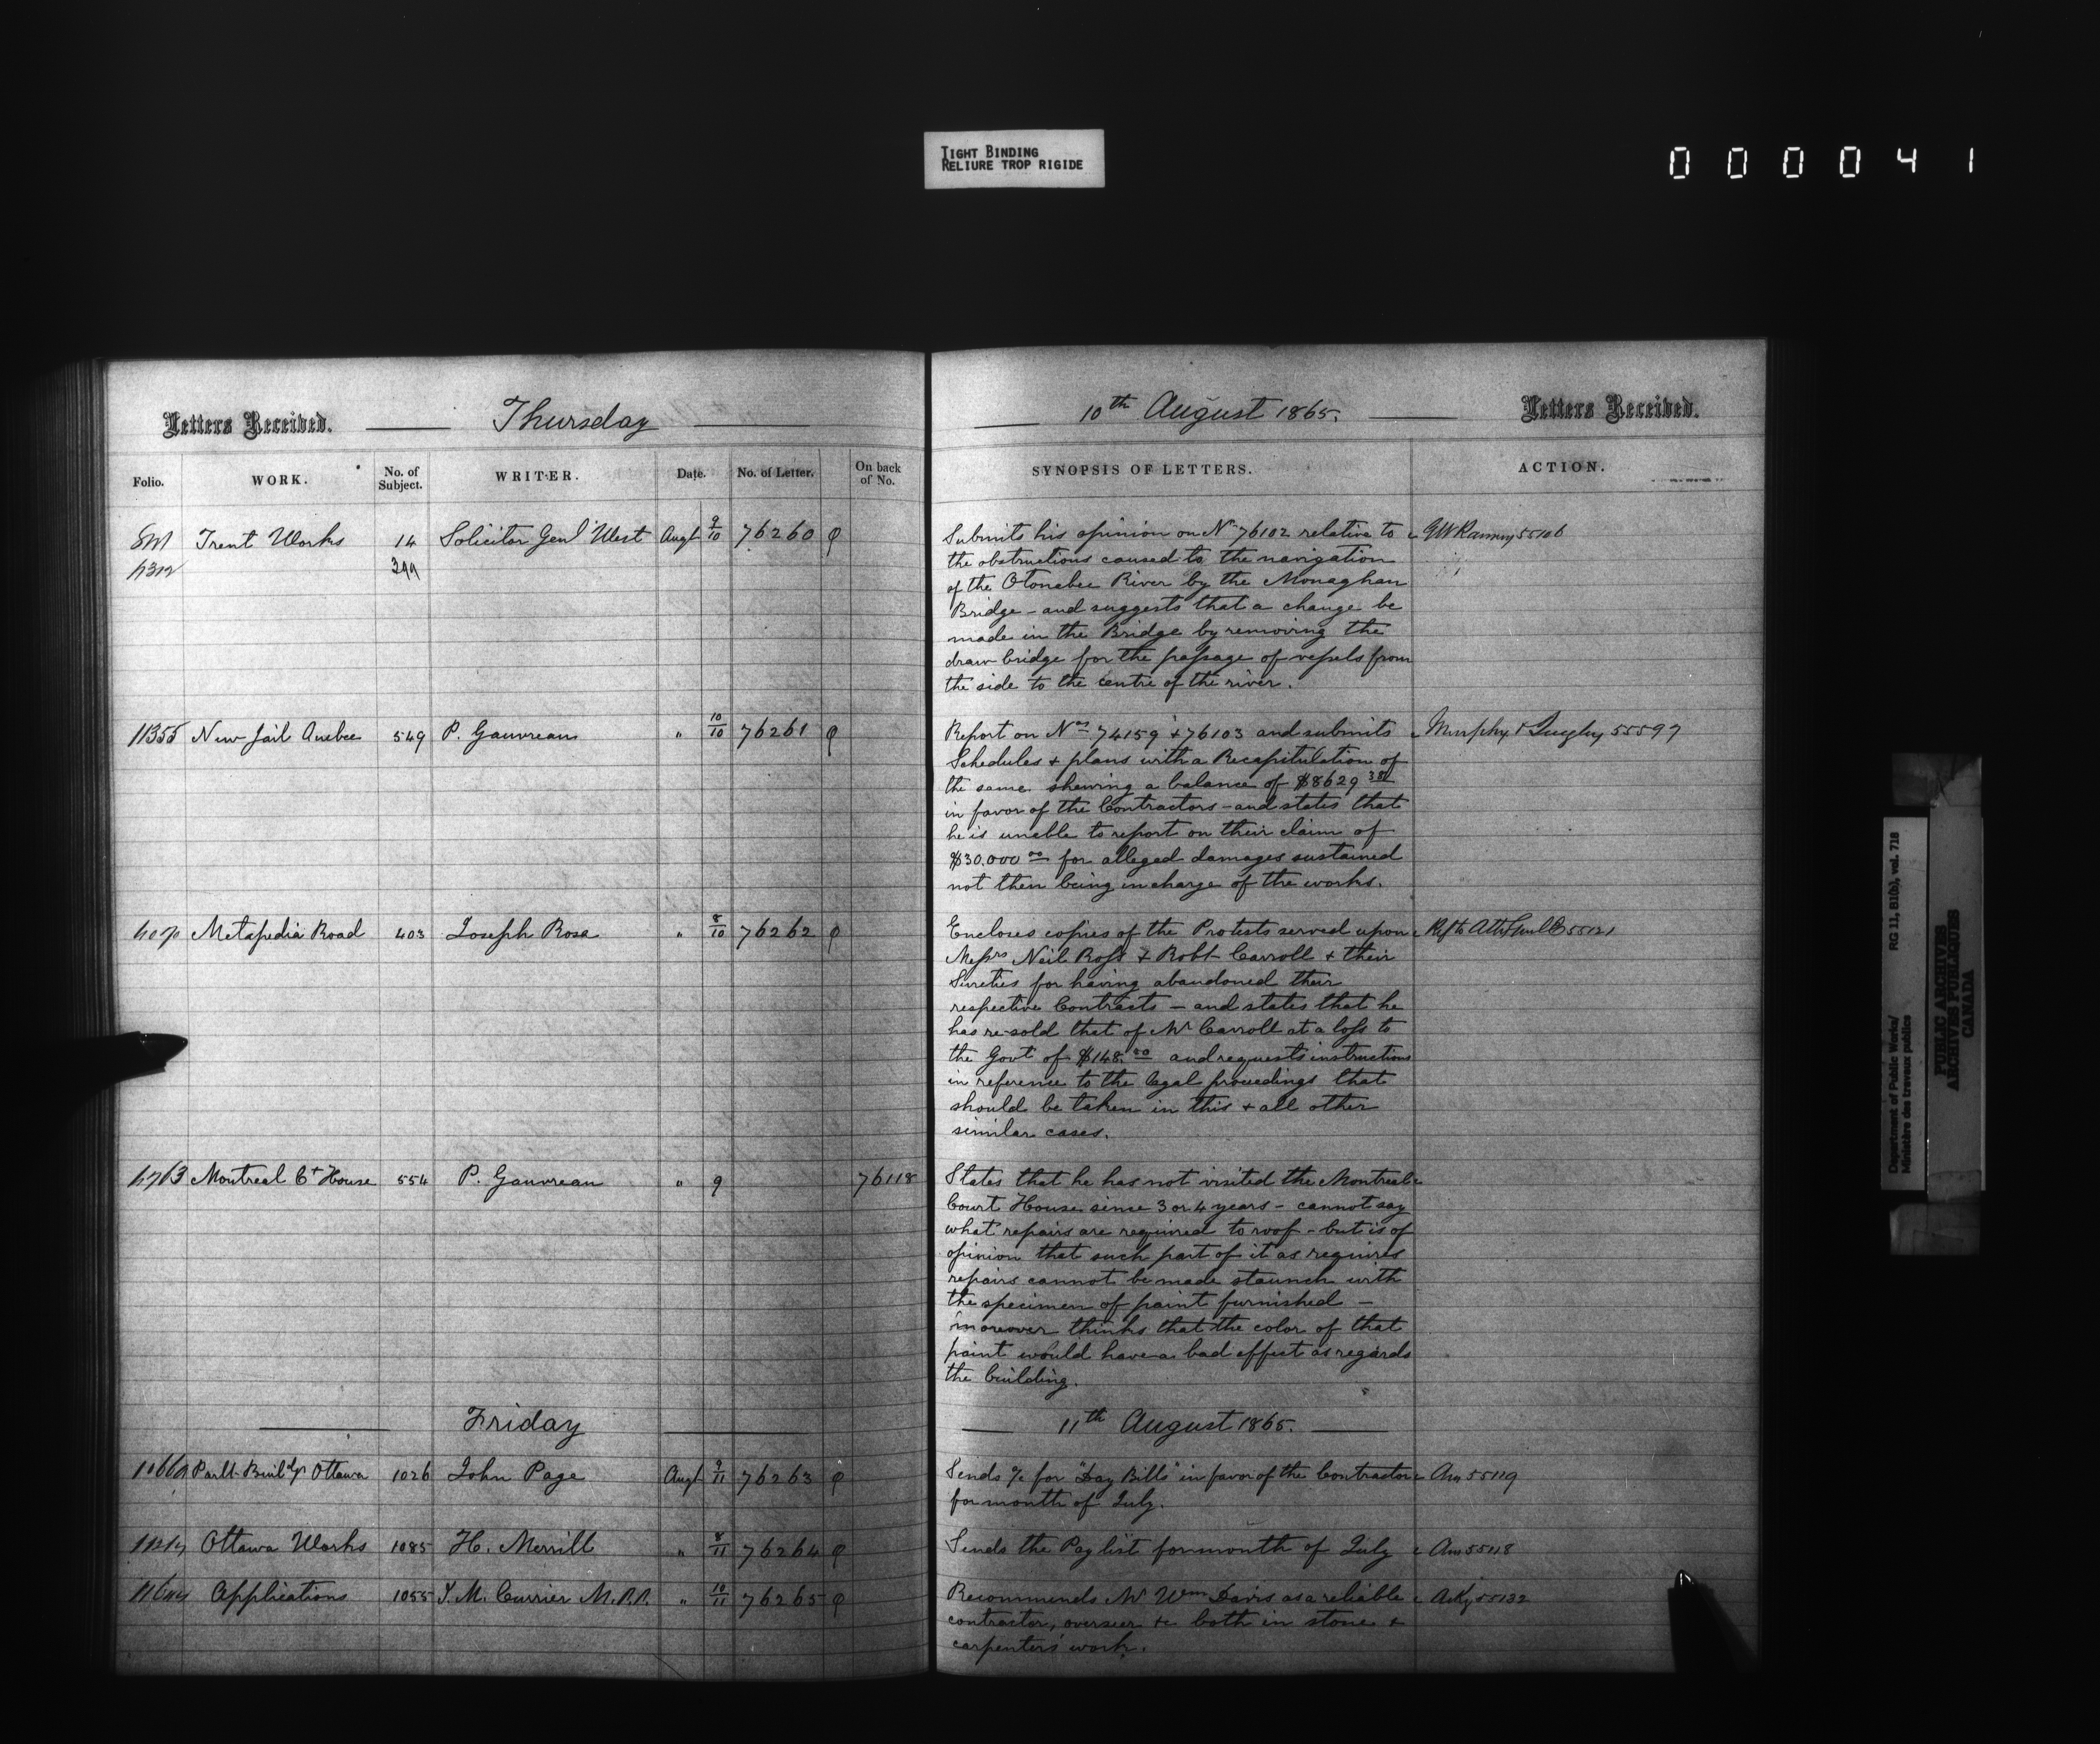 TIGHT BINDING
RELIURE TROP RIGIDE
000041
Letters Received. Thursday 10th August 1865. Letters Received.
Folio. WORK. No. of Subject. WRITER. Date. No. of Letter. On back of No. SYNOPSIS OF LETTERS. ACTION.
Trent Works 14 Solicitor Genl West Augt 9/10 76260 Submits his opinion on No 76102 relative to 55106
399
the obstructions caused to the navigation
of the Otonabee River by the Monaghan
Bridge - and suggests that a change be
made in the Bridge by removing the
draw bridge for the passage of vessels from
the side to the centre of the river.
11355 New Jail Quebec 549 P. Gauvreau " 10/10 76261 Report on Nos 74159 + 76103 and submits Murphy & Quigley 55597
Schedules + plans with a Recapitulation of
the same shewing a balance of $8629 38
in favor of the Contractors - and states that
he is unable to report on their claim of
$30.000 00 for alleged damages sustained
not then being in charge of the works.
Metapedia Road 403 Joseph Rosa " 8/10 76262 Encloses copies of the Protests served upon 55121
Messrs Neil Ross & Robt Carroll + their
Sureties for having abandoned their
respective Contracts - and states that he
has re-sold that of Mr Carroll at a loss to
the Govt of $148. and requests instructions
in reference to the legal proceedings that
should be taken in this + all other
similar cases.
Montreal Ct House 554 P. Gauvreau " 9 76118 States that he has not visited the Montreal
Court House since 3 or 4 years - cannot say
what repairs are required to roof - but is of
opinion that such part of it as requires
repairs cannot be made staunch with
the specimen of paint furnished -
moreover thinks that the color of that
paint would have a bad effect as regards
the building.
Friday 11th August 1865.
Parlt Buildgs Ottawa 1026 John Page Augt 9/11 76263 Sends a/c for "Day Bills" in favor of the Contractor 55119
for month of July.
Ottawa Works 1085 H. Merrill " 8/11 76264 Sends the Pay list for month of July 55118
Applications 1055 J. M. Currier M.P.P. " 10/11 76265 Recommends Mr Wm Davis as a reliable 55132
contractor, overseer &c both in stone &
carpenters' work.
Department of Public Works/ RG 11, B1(b), vol. 718
Ministère des travaux publics
PUBLIC ARCHIVES
ARCHIVES PUBLIQUES
CANADA